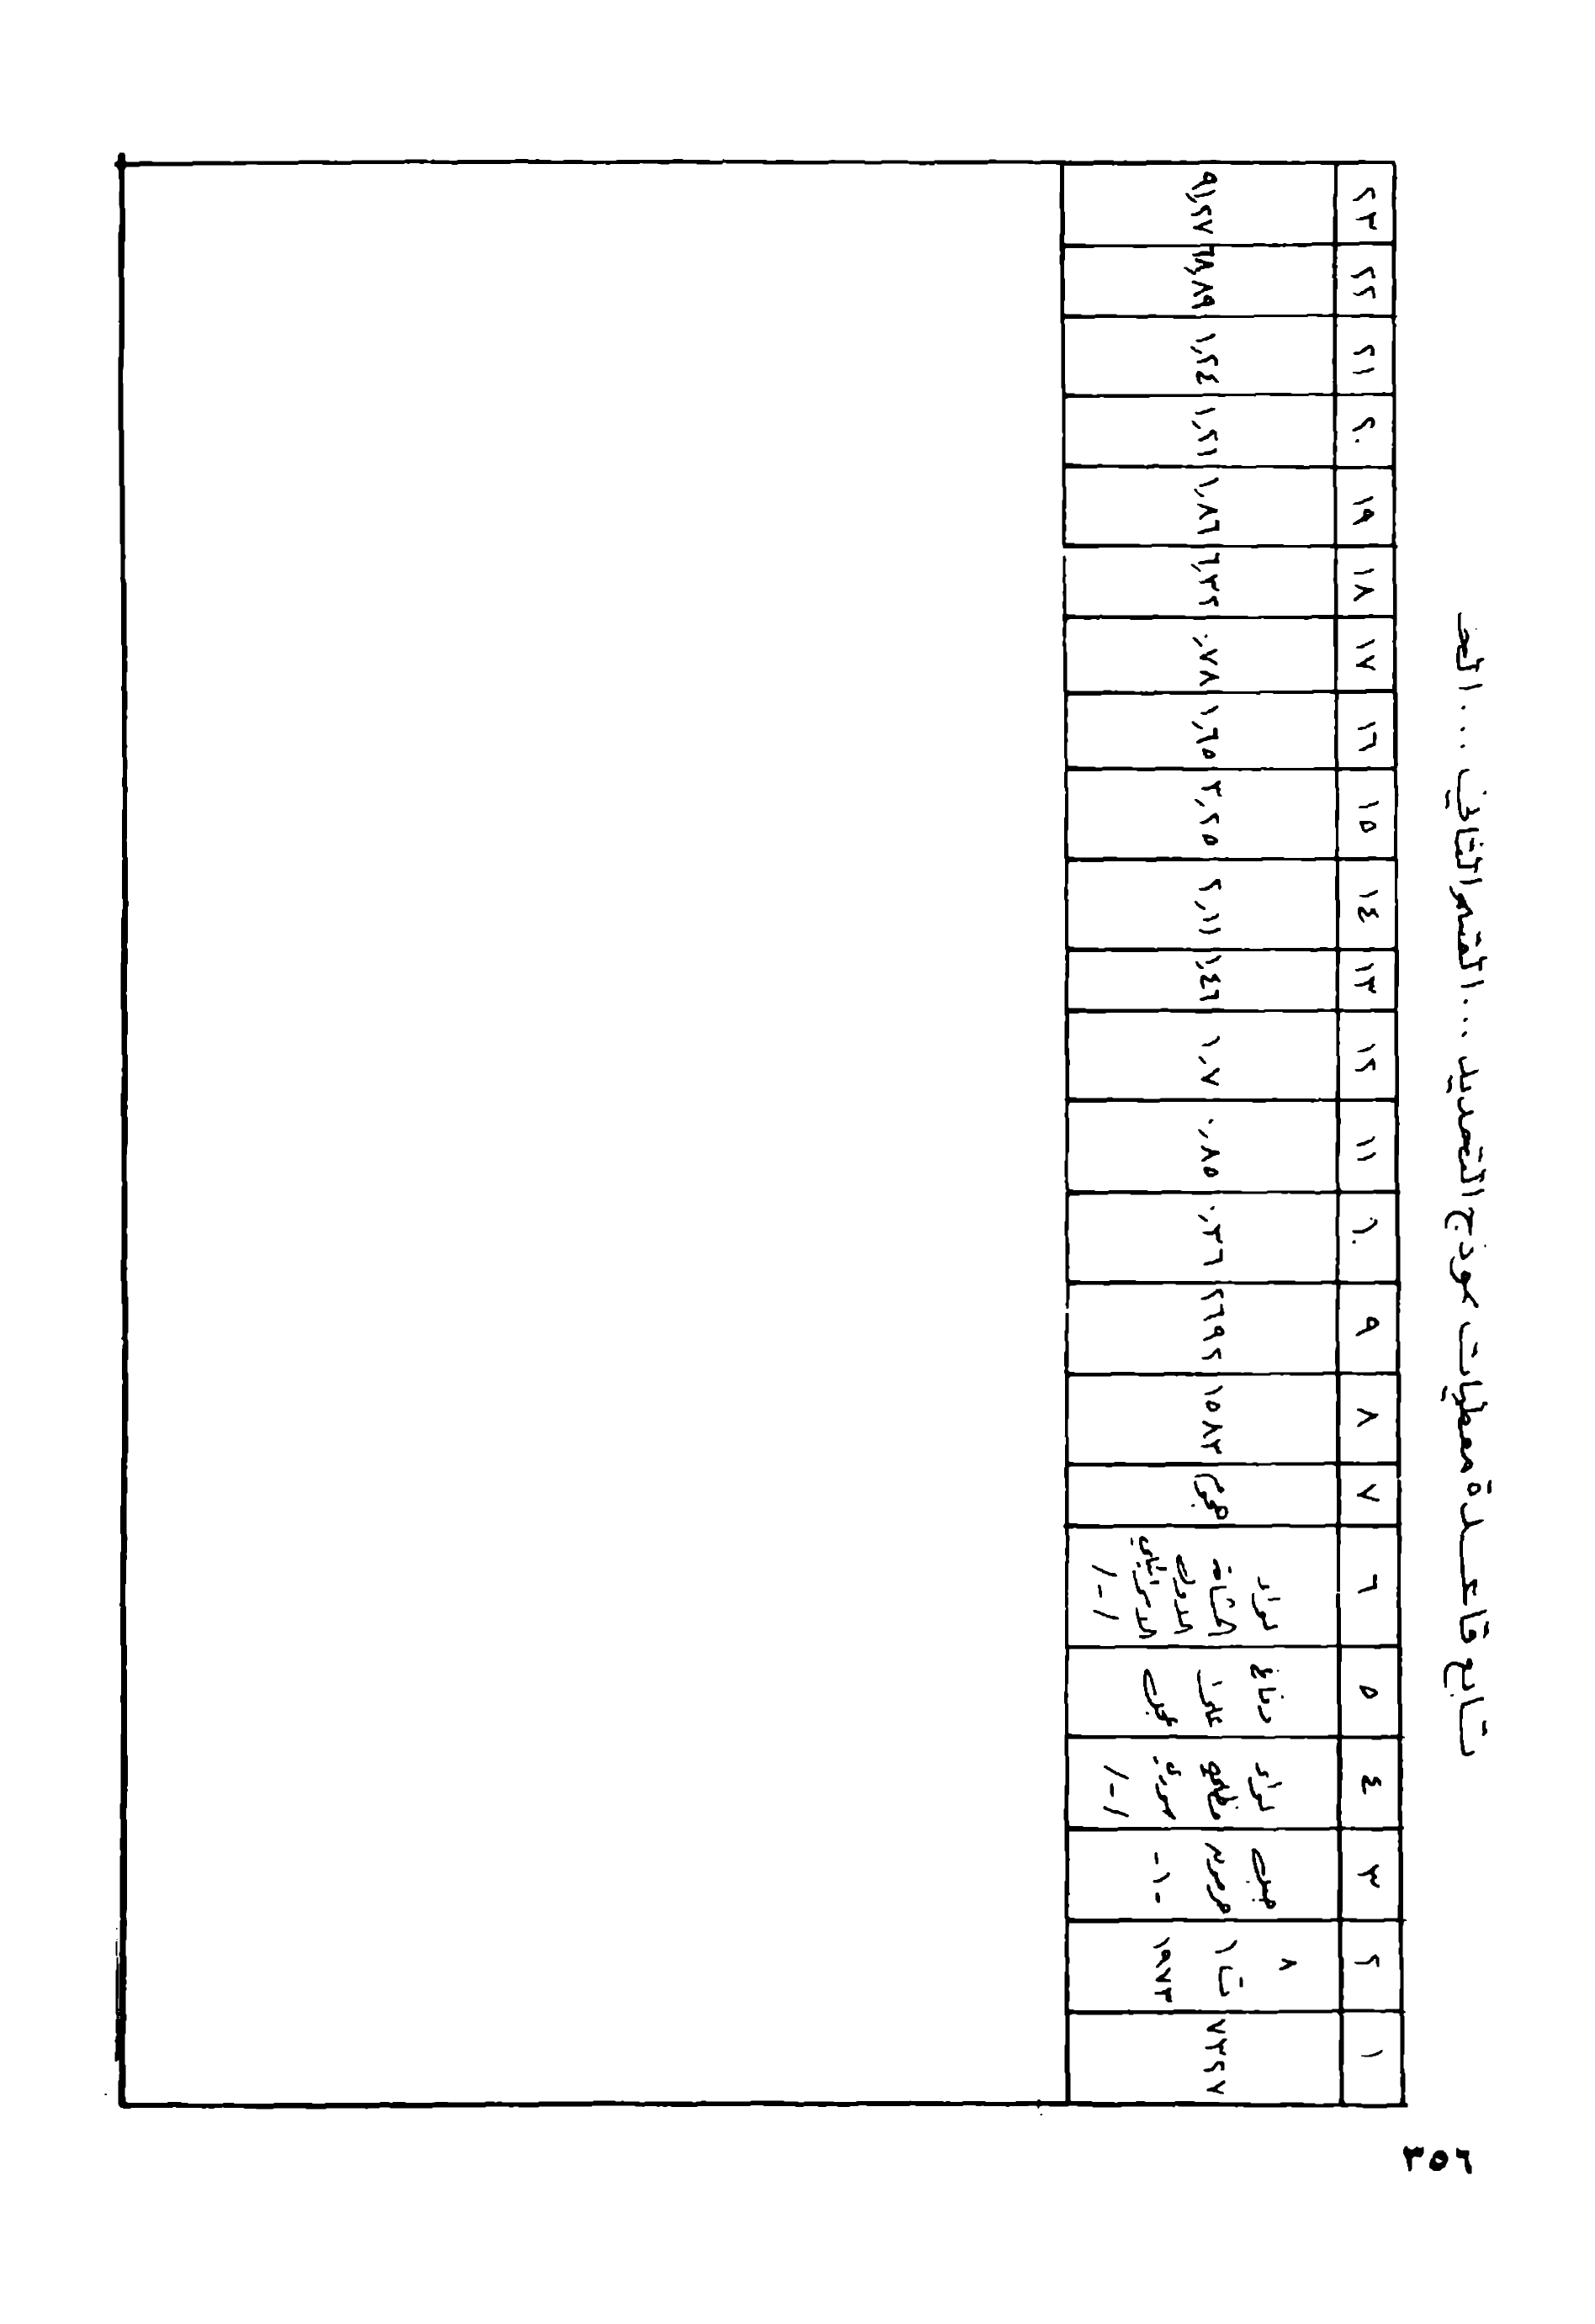 تابع قاعـدة معطيات نموذج ...القسم الثاني ....
١ ٢ ٣ ٤ ٥ ٦ ٧ ٨ ٩ ١٠ ١١ ١٢ ١٣ ١٤ ١٥ ١٦ ١٧ ١٨ ١٩ ٢٠ ٢١ ٢٢ ٢٣
٧٣٢٧
٨
ت١
١٩٧٣
جبل
حرمون
-١-
لواء
سوري
/-/
دفاع
على
عجل
لواء
المشاة
/-/
هجوم
١٥٨٣
٢٦٩٢
٠,٣٦
٠,٨٥
١,٧
١,٤٦
٢,١١
٣,٢٥
١,٦٥
٠,٧٨
٦,٣٢
١,٨٦
١,٢١
١,٢٤
٦٨,٨٩
٩١,٢٧
٣٥٦